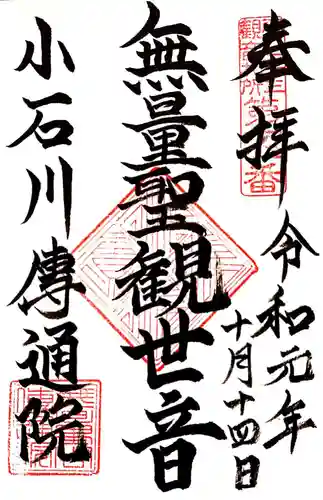 奉拝
令和元年
十月十四日
無量聖観世音
小石川傳通院